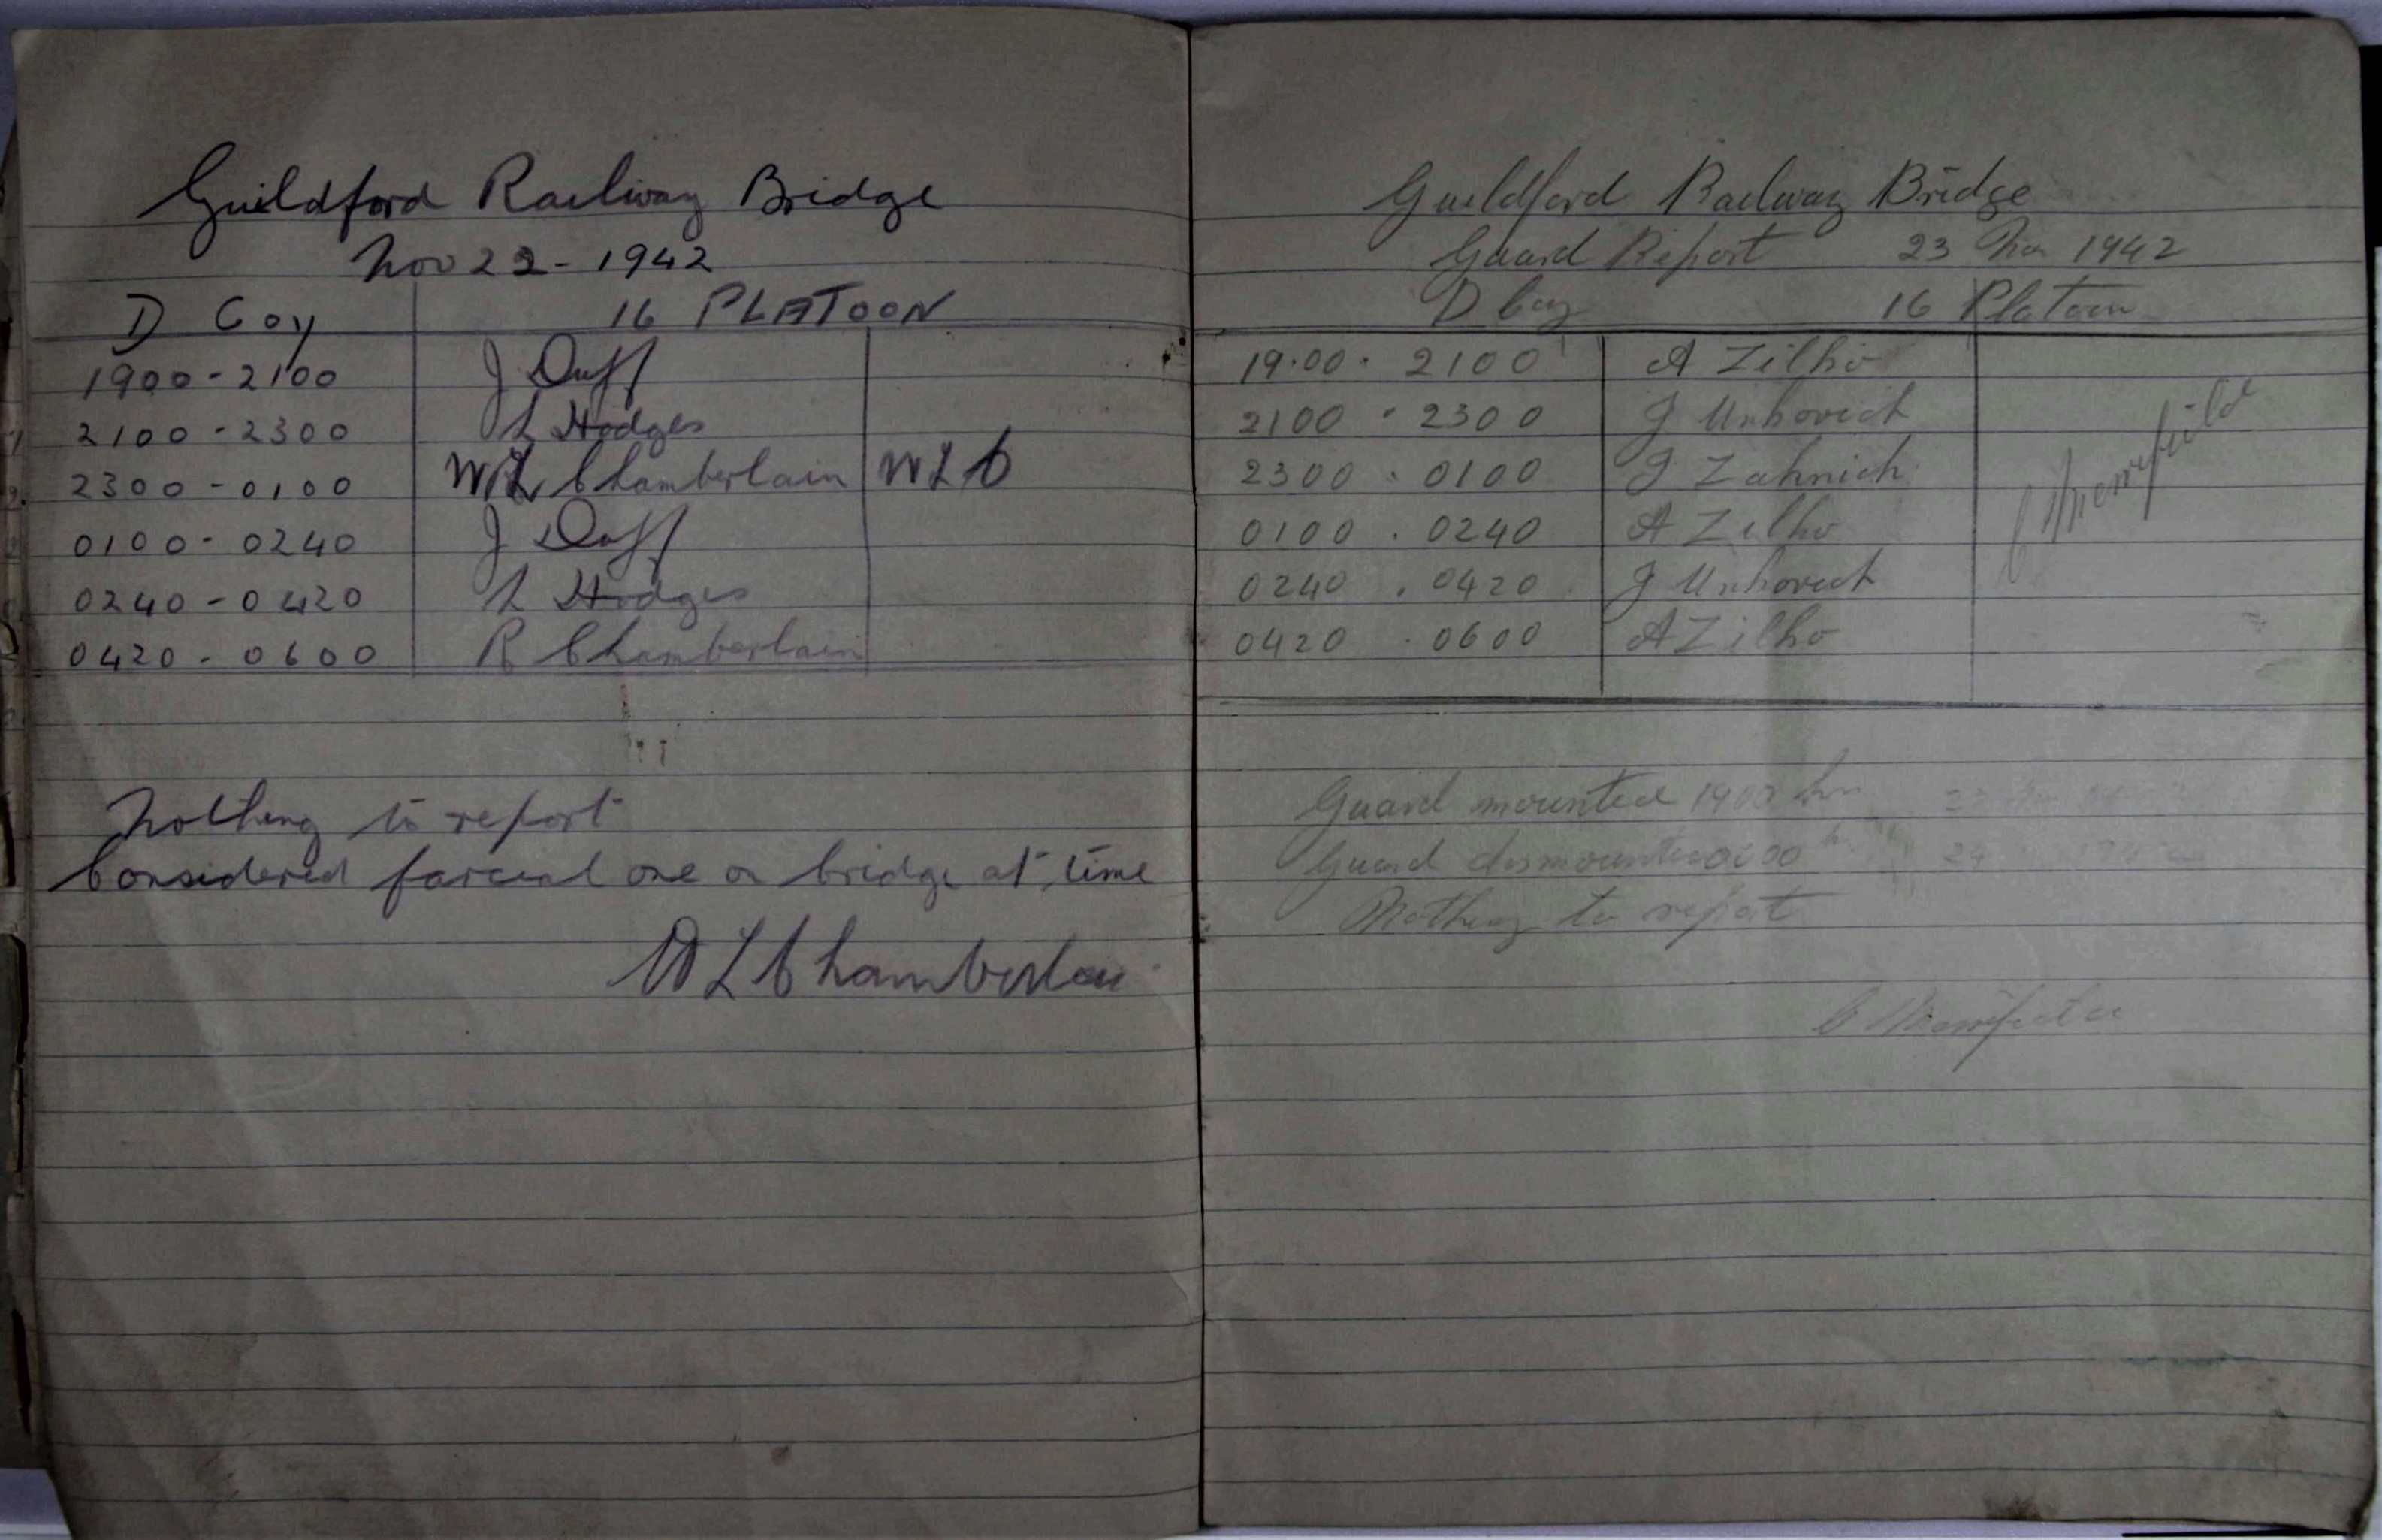 Guildford Railway Bridge
Nov 22 - 1942
D Coy 16 PLATOON
1900 - 2100 J Duff
2100 - 2300 L Hodges
2300 - 0100 W L Chamberlain W L C
0100 - 0240 J Duff
0240 - 0420 L Hodges
0420 - 0600 R Chamberlain
Nothing to report
Considered farcial one on bridge at time
W L Chamberlain
Guildford Railway Bridge
Guard Report 23 Nov 1942
D Coy 16 Platoon
19.00 . 2100 A Zilko
2100 . 2300 J Urkovich
2300 . 0100 J Zahnich
0100 . 0240 A Zilko
0240 . 0420 J Urkovich
0420 . 0600 A Zilko
C Merrifield
Guard mounted 1900 hrs
Guard dismounted 0600
Nothing to report
C Merrifield